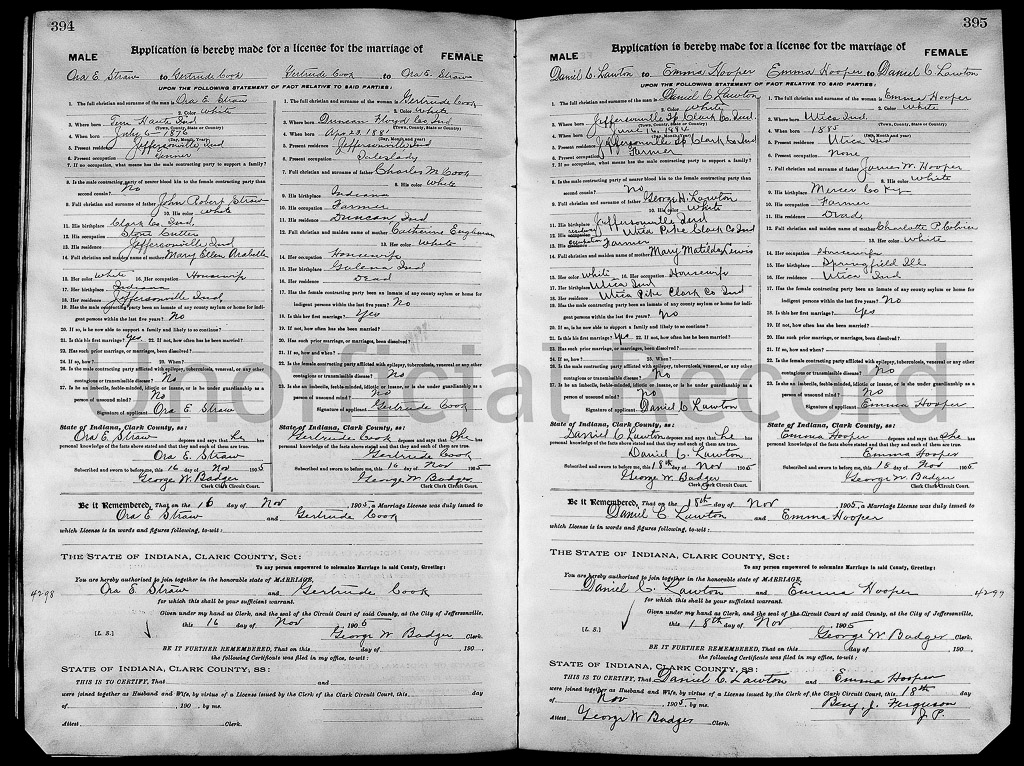 394
Application is hereby made for a license for the marriage of
MALE FEMALE
Ora E. Straw to Gertrude Cook Gertrude Cook to Ora E. Straw
UPON THE FOLLOWING STATEMENT OF FACT RELATIVE TO SAID PARTIES:
1. The full christian and surname of the man is Ora E Straw
2. Color White
3. Where born Terr Haute Ind
(Town, County, State or Country)
4. When born July 6 - 1876
(Day, Month, Year)
5. Present residence Jeffersonville Ind
6. Present occupation
7. If no occupation, what means has the male contracting party to support a family?
8. Is the male contracting party of nearer blood kin to the female contracting party than
second cousin? No
9. Full christian and surname of father John Robert Straw
10. His color White
11. His birthplace Clark Co Ind,
12. His occupation Stone Cutter
13. His residence Jeffersonville Ind
14. Full christian and maiden name of mother Mary Ellen
15. Her color White 16. Her occupation Housewife
17. Her birthplace Indiana
18. Her residence Jeffersonville Ind,
19. Has the male contracting party been an inmate of any county asylum or home for indi-
gent persons within the last five years? No
20. If so, is he now able to support a family and likely to so continue?
21. Is this his first marriage? Yes 22. If not, how often has he been married?
23. Has such prior marriage, or marriages, been dissolved?
24. If so, how? 25. When?
26. Is the male contracting party afflicted with epilepsy, tuberculosis, venereal, or any other
contagious or transmissible disease? No
27. Is he an imbecile, feeble-minded, idiotic or insane, or is he under guardianship as a
person of unsound mind? No
Signature of applicant Ora E. Straw
State of Indiana, Clark County, ss:
Ora E. Straw deposes and says that he has
personal knowledge of the facts above stated and that they and each of them are true.
Ora E. Straw
Subscribed and sworn to before me, this 16 day of Nov 1905
George W. Badger
Clerk Clark Circuit Court.
1. The full christian and surname of the woman is Gertrude Cook
2. Color White
3. Where born Duncan Floyd Co Ind
(Town, County, State or Country)
4. When born Apr 23 1881
(Day, Month and year)
5. Present residence Jeffersonville Ind
6. Present occupation Saleslady
7. Full christian and surname of father Charles M Cook
8. His color White
9. His birthplace Indiana
10. His occupation Farmer
11. His residence Duncan Ind
12. Full christian and maiden name of mother Catherine
13. Her color White
14. Her occupation Housewife
15. Her birthplace Galena Ind
16. Her residence Dead
17. Has the female contracting party been an inmate of any county asylum or home for
indigent persons within the last five years? No
18. Is this her first marriage? Yes
19. If not, how often has she been married?
20. Has such prior marriage, or marriages, been dissolved?
21. If so, how and when?
22. Is the female contracting party afflicted with epilepsy, tuberculosis, venereal, or any other
contagious or transmissible disease? No
23. Is she an imbecile, feeble-minded, idiotic or insane, or is she under guardianship as a
person of unsound mind? No
Signature of applicant Gertrude Cook
State of Indiana, Clark County, ss:
Gertrude Cook deposes and says that She has
personal knowledge of the facts above stated and that they and each of them are true.
Gertrude Cook
Subscribed and sworn to before me, this 16 day of Nov 1905
George W. Badger
Clerk Clark Circuit Court.
Be it Remembered, That on the 16 day of Nov 1905, a Marriage License was duly issued to
Ora E Straw and Gertrude Cook
which License is in words and figures following, to-wit:
THE STATE OF INDIANA, CLARK COUNTY, Sct:
To any person empowered to solemnize Marriage in said County, Greeting:
You are hereby authorized to join together in the honorable state of MARRIAGE,
4298 Ora E. Straw and Gertrude Cook
for which this shall be your sufficient warrant.
Given under my hand as Clerk, and the seal of the Circuit Court of said county, at the City of Jeffersonville,
this 16 day of Nov 1905
[L. S.] George W Badger Clerk.
BE IT FURTHER REMEMBERED, That on this day of 190 ,
the following Certificate was filed in my office, to-wit:
STATE OF INDIANA, CLARK COUNTY, SS:
THIS IS TO CERTIFY, That and
were joined together as Husband and Wife, by virtue of a License issued by the Clerk of the Clark Circuit Court, this day
of , 190 , by me.
Attest Clerk.
395
Application is hereby made for a license for the marriage of
MALE FEMALE
Daniel C. Lawton to Emma Hooper Emma Hooper to Daniel C Lawton
UPON THE FOLLOWING STATEMENT OF FACT RELATIVE TO SAID PARTIES:
1. The full christian and surname of the man is Daniel C Lawton
2. Color White
3. Where born Jeffersonville Tp Clark Co Ind
(Town, County, State or Country)
4. When born June 16, 1884
(Day, Month, Year)
5. Present residence Jeffersonville Tp Clark Co Ind
6. Present occupation Farmer
7. If no occupation, what means has the male contracting party to support a family?
8. Is the male contracting party of nearer blood kin to the female contracting party than
second cousin? No
9. Full christian and surname of father George H. Lawton
10. His color White
11. His birthplace Jeffersonville Ind
12. His residence Utica Pike Clark Co Ind
13. His occupation Farmer
14. Full christian and maiden name of mother Mary Matilda Lewis
15. Her color White 16. Her occupation Housewife
17. Her birthplace Utica Ind
18. Her residence Utica Pike Clark Co Ind
19. Has the male contracting party been an inmate of any county asylum or home for indi-
gent persons within the last five years? No
20. If so, is he now able to support a family and likely to so continue?
21. Is this his first marriage? Yes 22. If not, how often has he been married?
23. Has such prior marriage, or marriages, been dissolved?
24. If so, how? 25. When?
26. Is the male contracting party afflicted with epilepsy, tuberculosis, venereal, or any other
contagious or transmissible disease? No
27. Is he an imbecile, feeble-minded, idiotic or insane, or is he under guardianship as a
person of unsound mind? No
Signature of applicant Daniel C Lawton
State of Indiana, Clark County, ss:
Daniel C Lawton deposes and says that he has
personal knowledge of the facts above stated and that they and each of them are true.
Daniel C. Lawton
Subscribed and sworn to before me, this 18th day of Nov 1905
George W. Badger
Clerk Clark Circuit Court.
1. The full christian and surname of the woman is Emma Hooper
2. Color White
3. Where born Utica Ind.
(Town, County, State or Country)
4. When born 1885
(Day, Month and year)
5. Present residence Utica Ind
6. Present occupation None
7. Full christian and surname of father James W. Hooper
8. His color White
9. His birthplace Mercer Co Ky
10. His occupation Farmer
11. His residence Dead
12. Full christian and maiden name of mother Charlotte P.
13. Her color White
14. Her occupation Housewife
15. Her birthplace Springfield Ill
16. Her residence Utica Ind
17. Has the female contracting party been an inmate of any county asylum or home for
indigent persons within the last five years? No
18. Is this her first marriage? Yes
19. If not, how often has she been married?
20. Has such prior marriage, or marriages, been dissolved?
21. If so, how and when?
22. Is the female contracting party afflicted with epilepsy, tuberculosis, venereal, or any other
contagious or transmissible disease? No
23. Is she an imbecile, feeble-minded, idiotic or insane, or is she under guardianship as a
person of unsound mind? No
Signature of applicant Emma Hooper
State of Indiana, Clark County, ss:
Emma Hooper deposes and says that She has
personal knowledge of the facts above stated and that they and each of them are true.
Emma Hooper
Subscribed and sworn to before me, this 18 day of Nov 1905
George W. Badger
Clerk Clark Circuit Court.
Be it Remembered, That on the 18th day of Nov 1905, a Marriage License was duly issued to
Daniel C Lawton and Emma Hooper
which License is in words and figures following, to-wit:
THE STATE OF INDIANA, CLARK COUNTY, Sct:
To any person empowered to solemnize Marriage in said County, Greeting:
You are hereby authorized to join together in the honorable state of MARRIAGE,
Daniel C. Lawton and Emma Hooper 4299
for which this shall be your sufficient warrant.
Given under my hand as Clerk, and the seal of the Circuit Court of said county, at the City of Jeffersonville,
this 18th day of Nov 1905
[L. S.] George W Badger Clerk.
BE IT FURTHER REMEMBERED, That on this day of 190 ,
the following Certificate was filed in my office, to-wit:
STATE OF INDIANA, CLARK COUNTY, SS:
THIS IS TO CERTIFY, That Daniel C. Lawton and Emma Hooper
were joined together as Husband and Wife, by virtue of a License issued by the Clerk of the Clark Circuit Court, this 18th day
of Nov 1905, by me. Benj. J. Ferguson
Attest George W Badger Clerk. J. P.
Unofficial Record